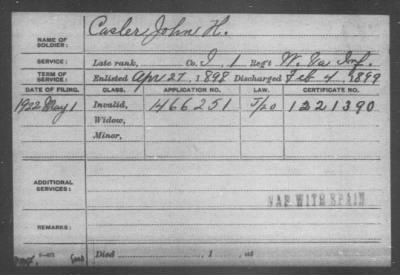 NAME OF SOLDIER: Casler John H.
SERVICE: Late rank, Co. I, 1 Reg't W. Va Inf.
TERM OF SERVICE: Enlisted Apr 27, 1898 Discharged Feb 4, 1899
DATE OF FILING. CLASS. APPLICATION NO. LAW. CERTIFICATE NO.
1922 May 1 Invalid, 1466251 J/20 1221390
Widow,
Minor,
ADDITIONAL SERVICES:
WAR WITH SPAIN
REMARKS:
Died 1